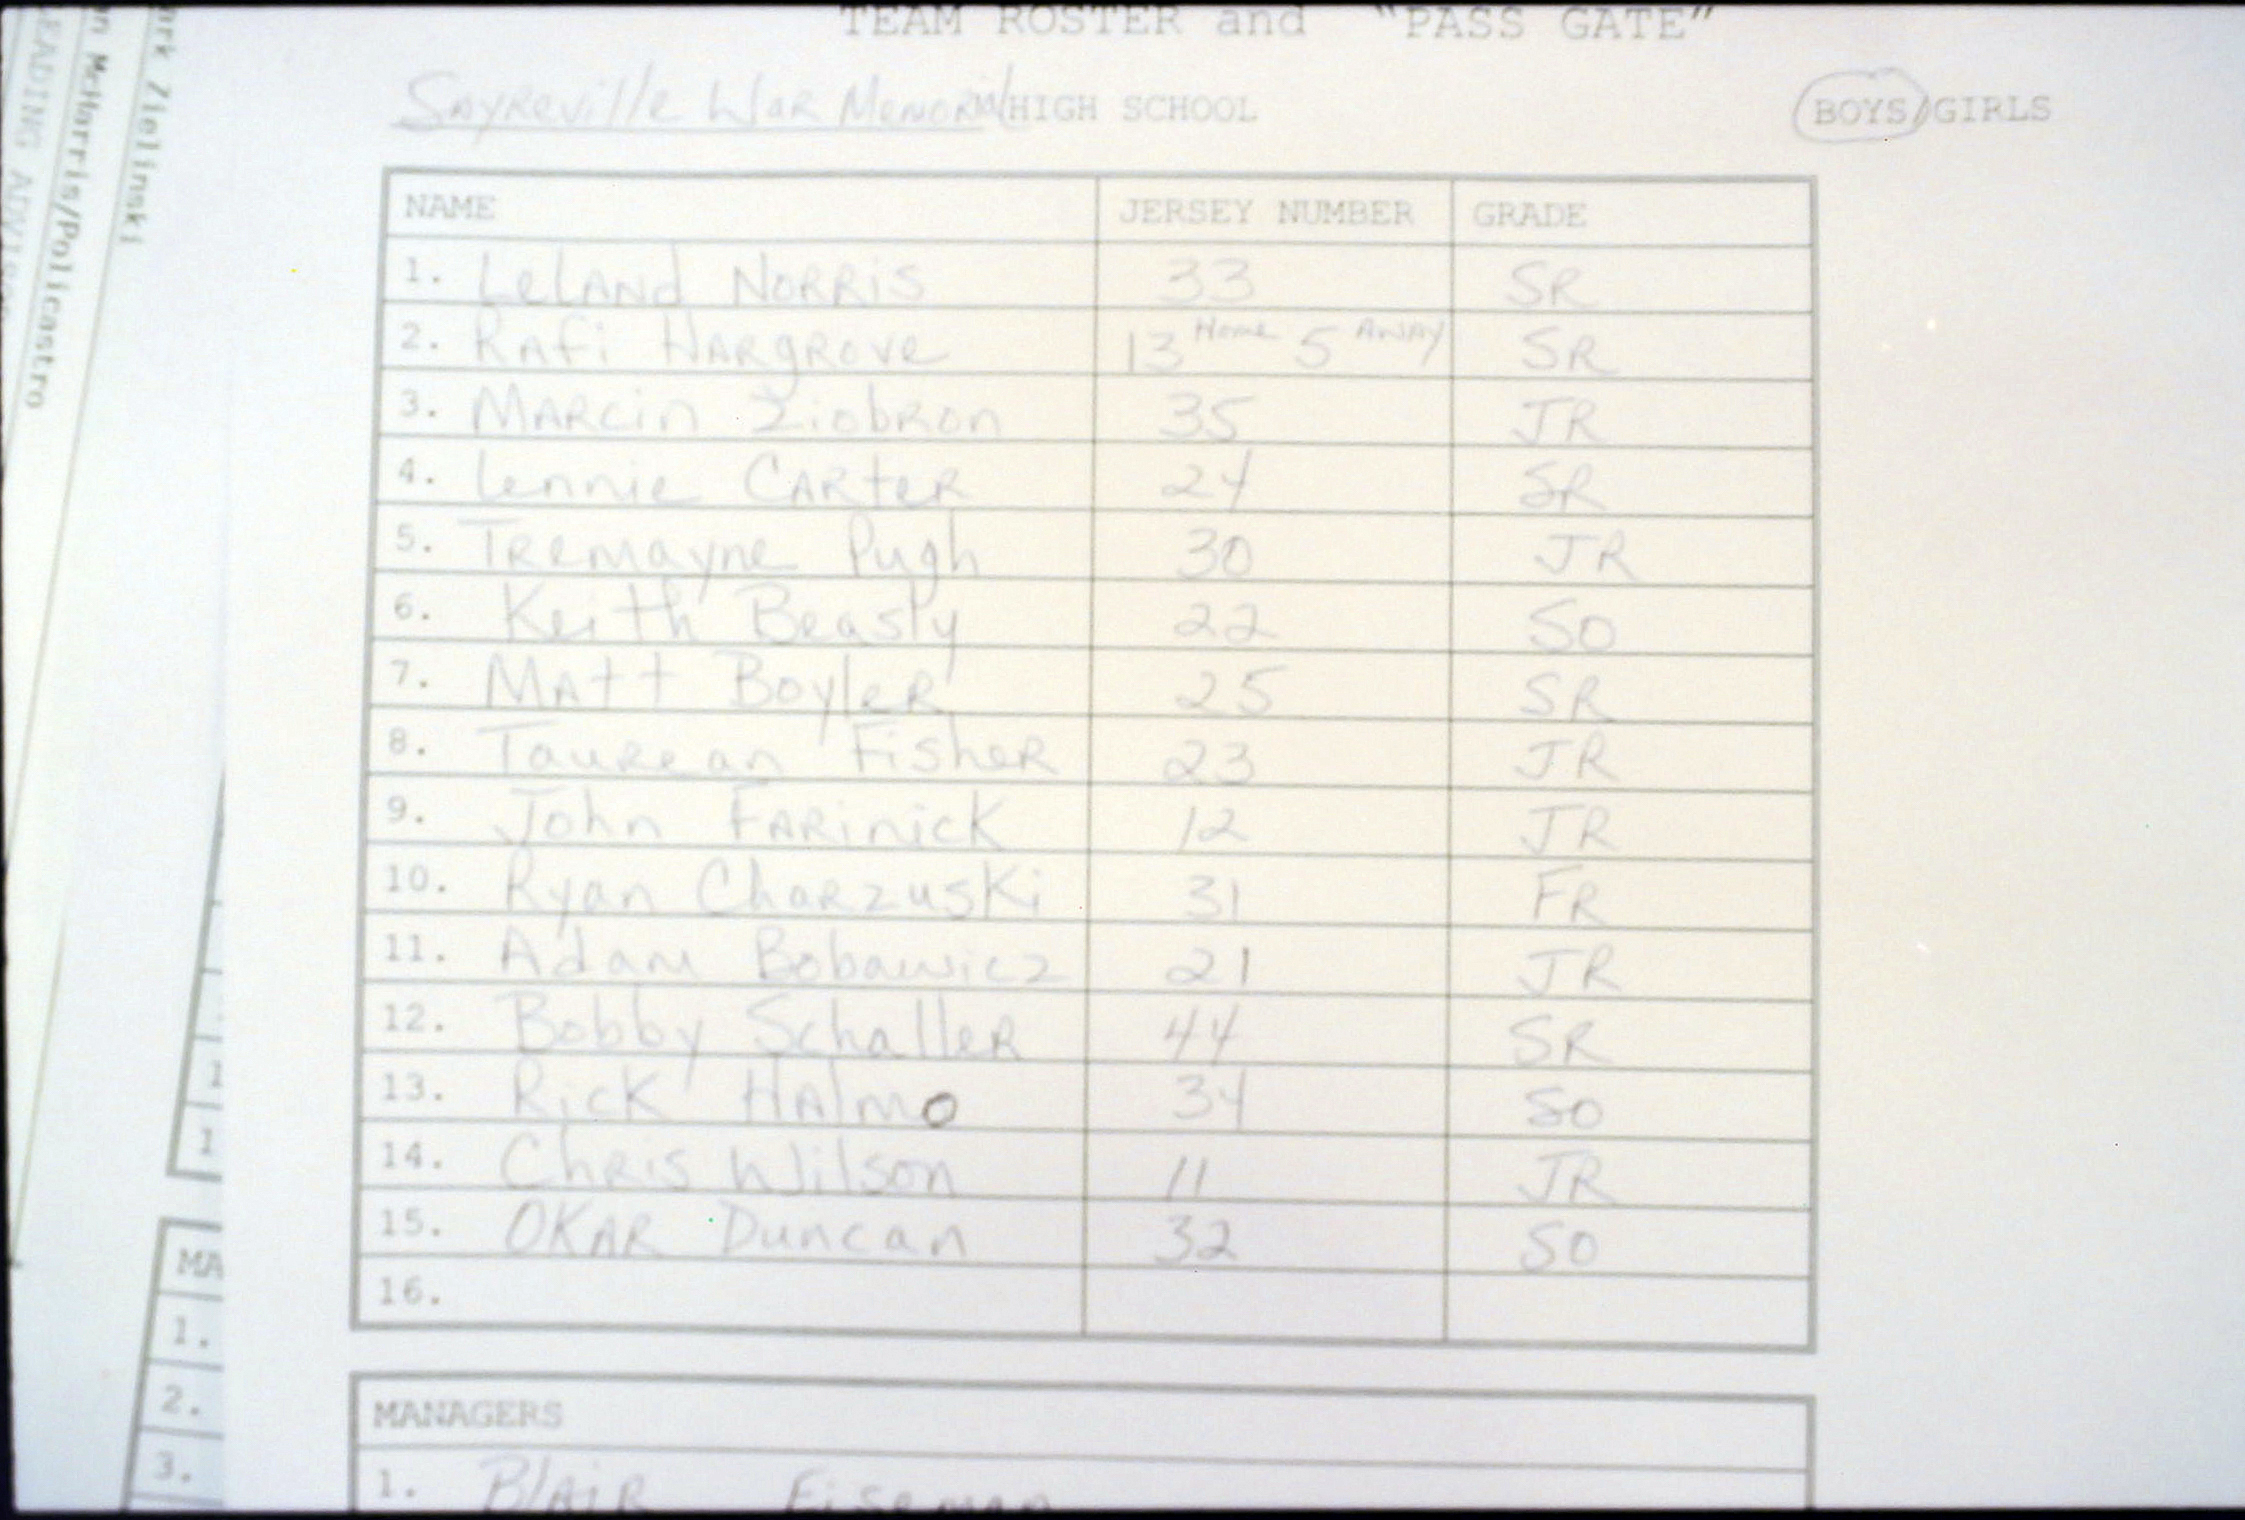 TEAM ROSTER and "PASS GATE"
Sayreville War Memorial HIGH SCHOOL BOYS/GIRLS
NAME JERSEY NUMBER GRADE
1. Leland Norris 33 SR
2. Rafi Hargrove 13 Home 5 Away SR
3. Marcin Ziobron 35 JR
4. Lennie Carter 24 SR
5. Tremayne Pugh 30 JR
6. Keith Beasly 22 SO
7. Matt Boyler 25 SR
8. Taurean Fisher 23 JR
9. John Farinick 12 JR
10. Ryan Charzuski 31 FR
11. Adam Bobawicz 21 JR
12. Bobby Schaller 44 SR
13. Rick Halmo 34 SO
14. Chris Wilson 11 JR
15. Okar Duncan 32 SO
16.
MANAGERS
1. Blair Eiseman
ark Zielinski
an McHarris/Policastro
EADING
MA
1.
2.
3.